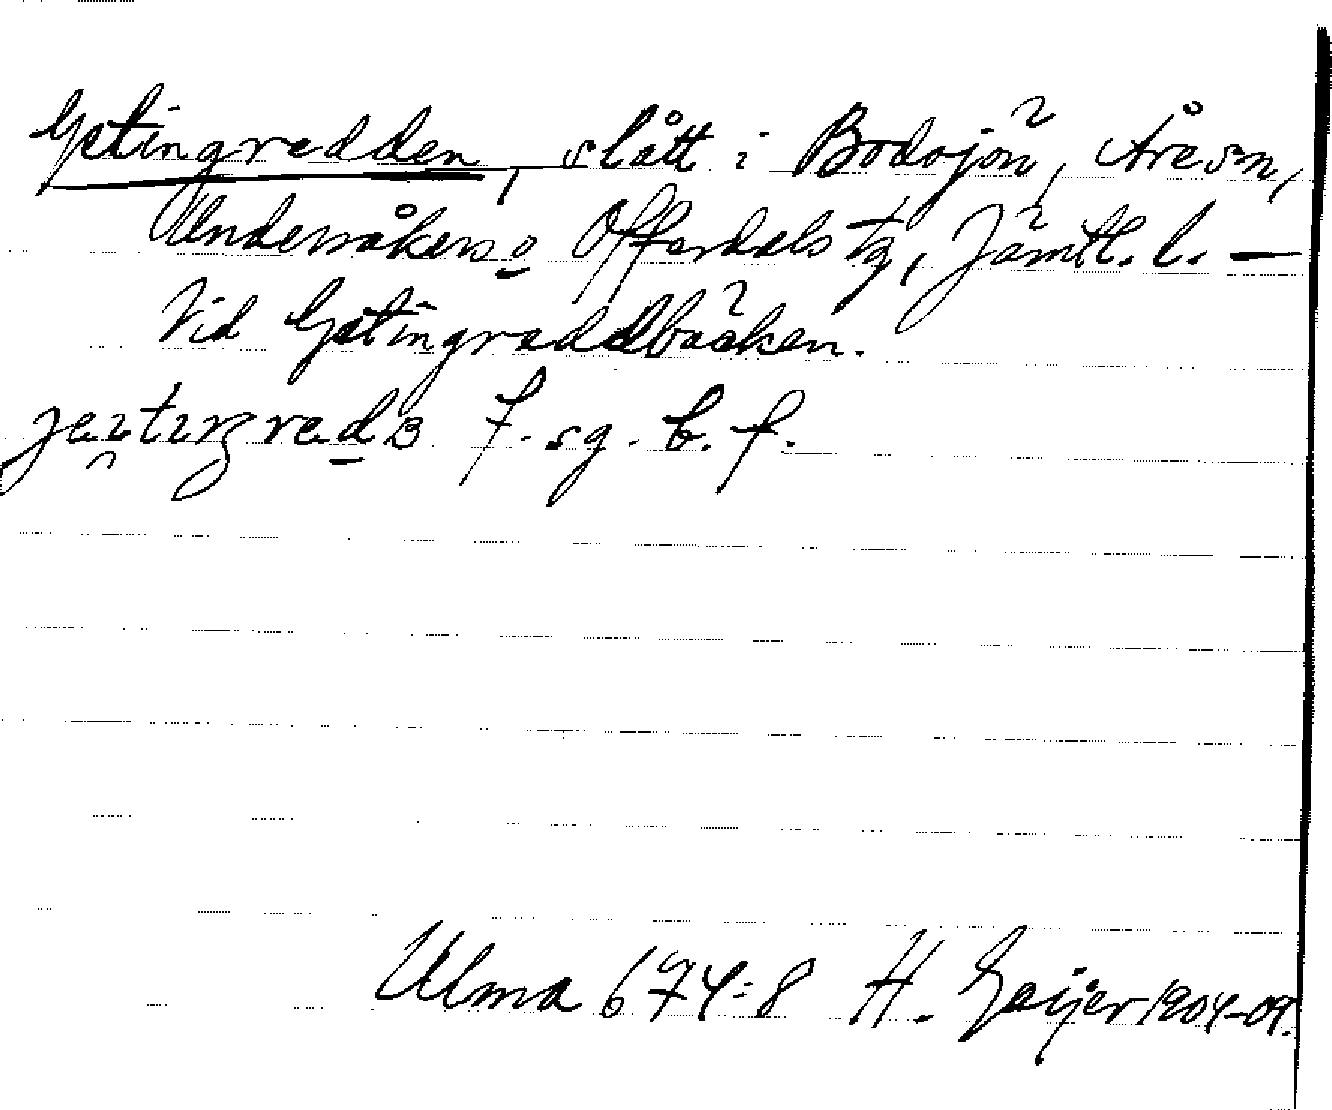 Getingredden, slått i Bodsjön, Åre sn,
Undersåkers o Offerdals tg, Jämtl. l. —
Vid Getingräddbäcken.
f. sg. b. f.
Ulma 674:8 H. Geijer 1904-09.